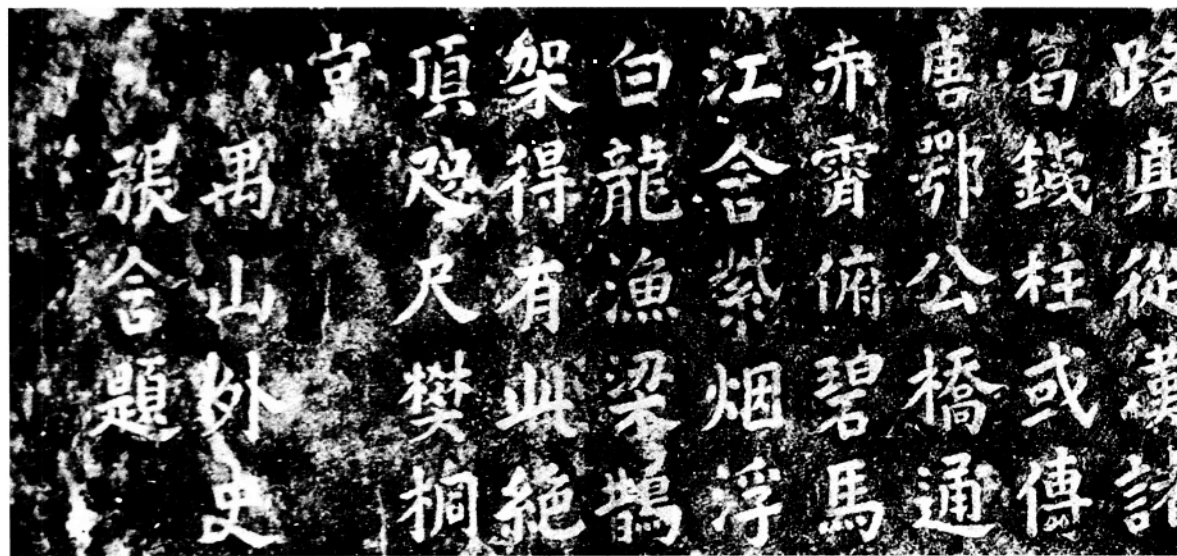 路真從漢諸
葛鐵柱或傳
唐鄂公橋通
赤霄俯碧馬
江含紫烟浮
白龍漁梁鵲
架得有此絶
頂咫尺樊桐
宮
禺山外史
張含題